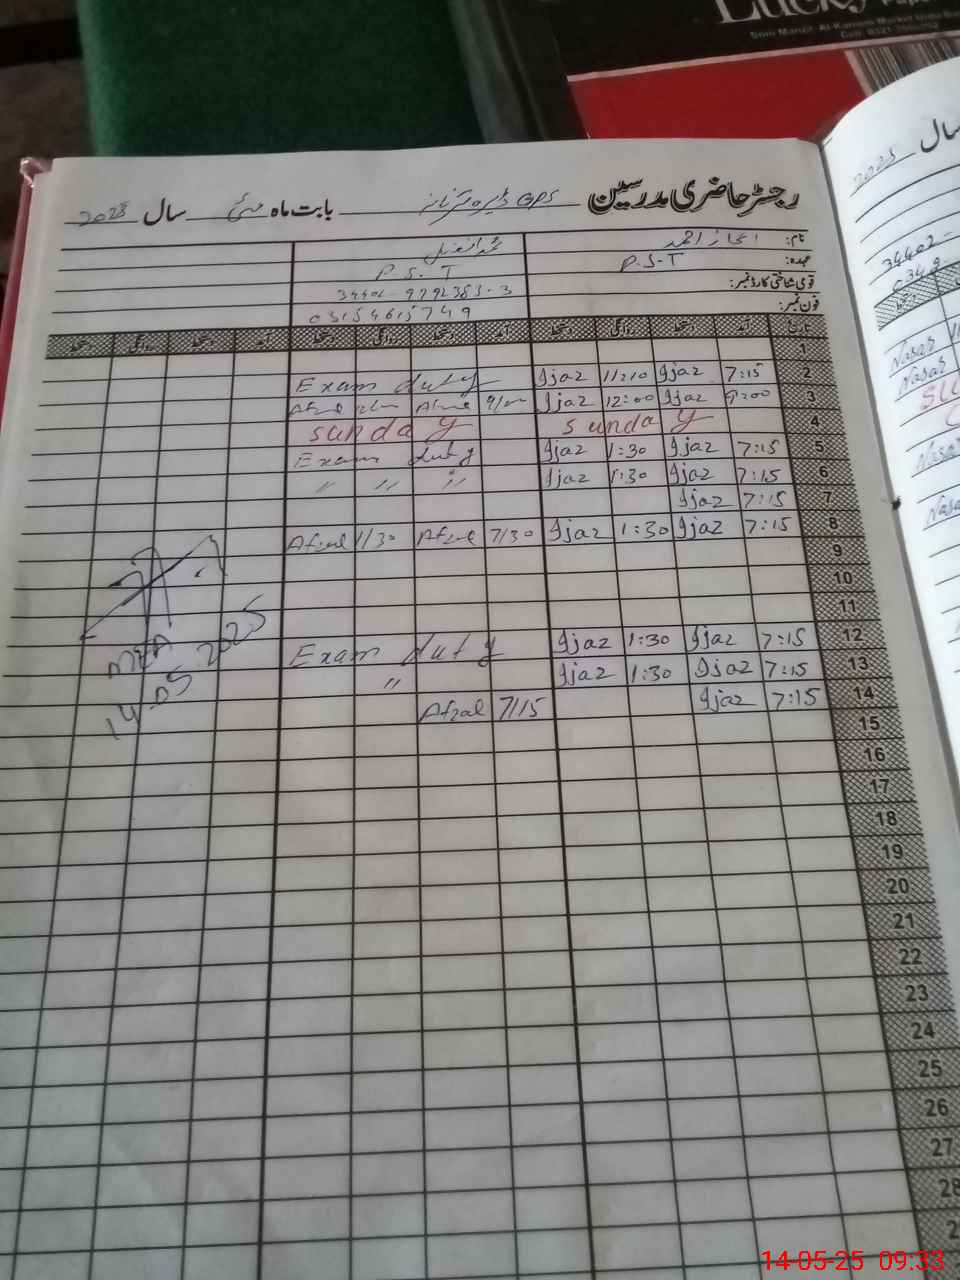 Lucky
رجسٹر حاضری مدرسین GPS ڈیرہ بابت ماہ مئی سال 2025
نام: اعجاز احمد محمد افضل
عہدہ: P.S.T P.S.T
قومی شناختی کارڈ نمبر: 34402-9792383-3
فون نمبر: 03154615749
تاریخ آمد دستخط روانگی دستخط آمد دستخط روانگی دستخط آمد دستخط روانگی دستخط
1
Exam duty Ijaz 11:10 Ijaz 7:15 2
Afzal Afzal Ijaz 12:00 Ijaz 9:00 3
sunday sunday 4
Exam duty Ijaz 1:30 Ijaz 7:15 5
" " " Ijaz 1:30 Ijaz 7:15 6
Ijaz 7:15 7
Afzal 1/30 Afzal 7/30 Ijaz 1:30 Ijaz 7:15 8
9
10
11
Exam duty Ijaz 1:30 Ijaz 7:15 12
" Ijaz 1:30 Ijaz 7:15 13
Afzal 7/15 Ijaz 7:15 14
MEA
14.05.2025
15
16
17
18
19
20
21
22
23
24
25
26
27
28
سال 2025
34402-
0349-
Nasar
Nasar
Su
Nasar
Nasa
14-05-25 09:33